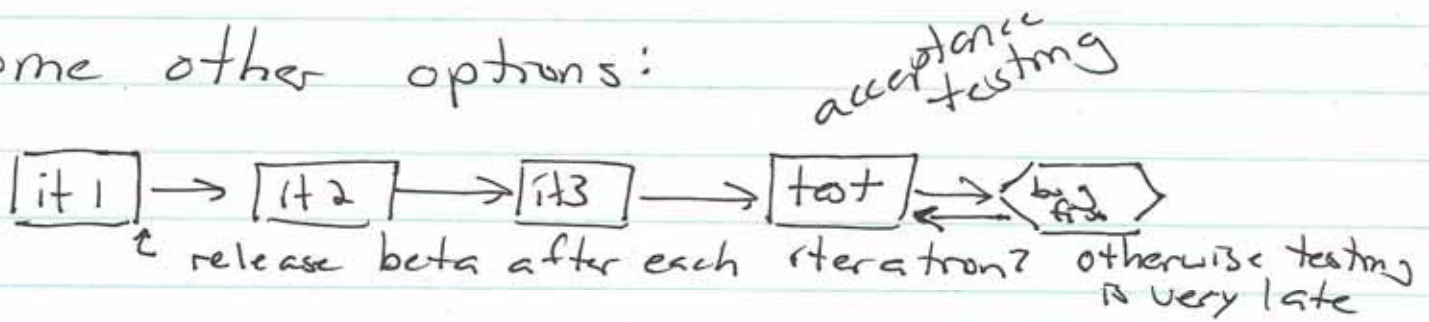 ome other options:
acceptance
testing
it 1
it 2
it3
test
bug
fix
release beta after each iteration? otherwise testing
is very late